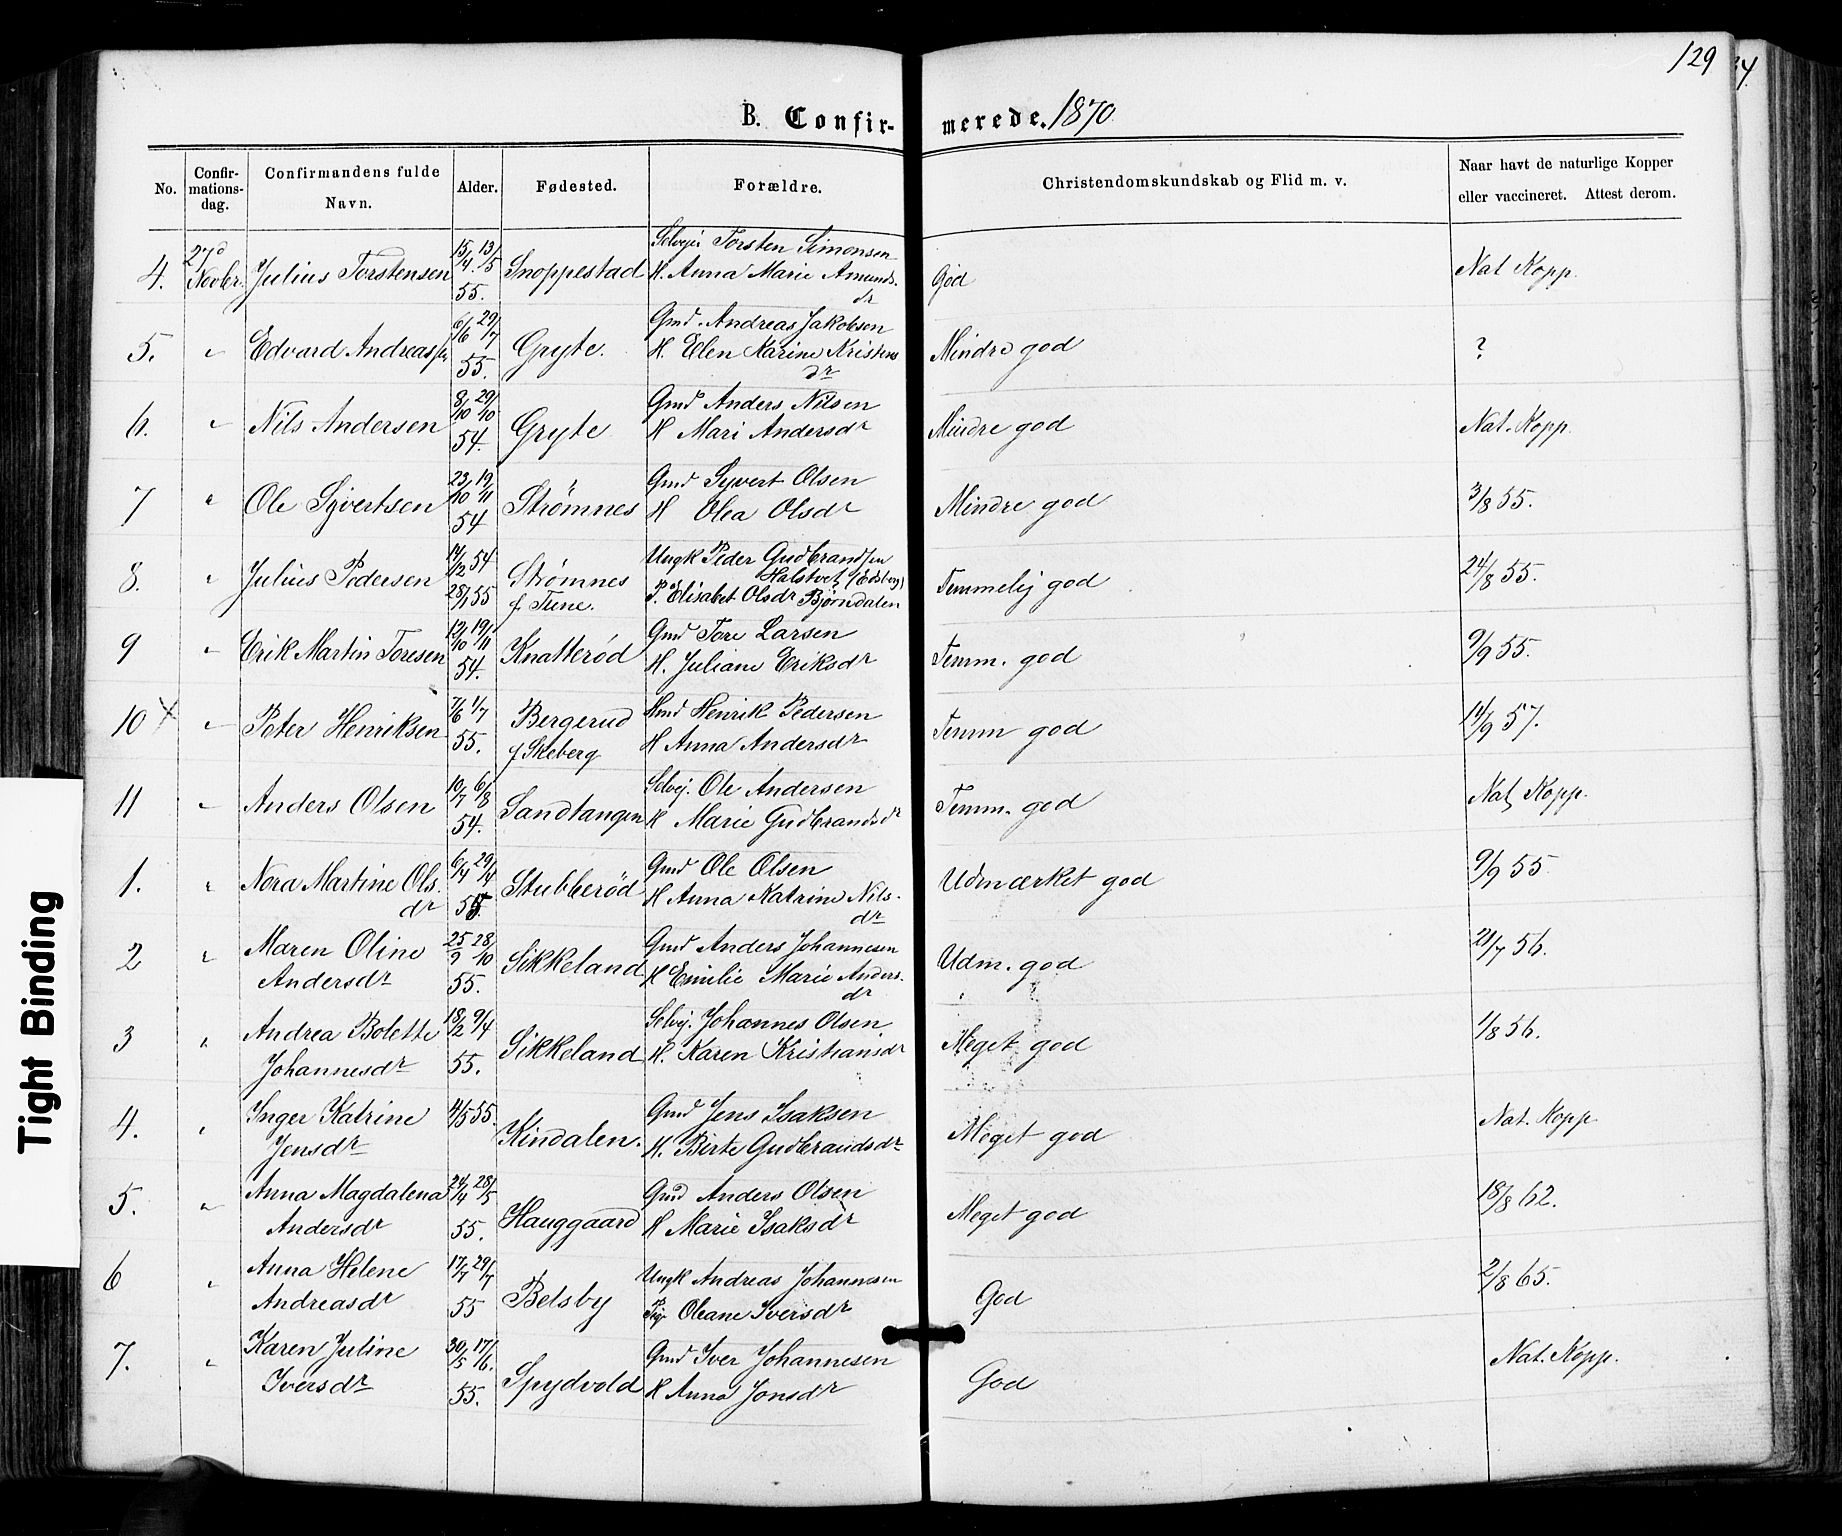 129
B. Confirmerede. 1870
No.
Confirmationsdag.
Confirmandens fulde Navn.
Alder.
Fødested.
Forældre.
Christendomskundskab og Flid m. v.
Naar havt de naturlige Kopper
eller vaccineret. Attest derom.
4. 27d Novbr. Julius Torstensen 15/4 13/5 55. Snoppestad Selvejer Torsten Simonsen
H. Anna Marie Amundsdr God Nat Kopp.
5. " Edvard Andreassen 6/6 29/7 55. Gryte. Gmd. Andreas Jakobsen
H. Elen Karine Kristensdr Mindre god ?
6. " Nils Andersen 8/10 29/10 54. Gryte Gmd Anders Nilsen
H Mari Andersdr Mindre god Nat. Kopp.
7 " Ole Syvertsen 23/10 19/11 54 Strømnes Gmd Syvert Olsen
H Olea Olsdr Mindre god 3/8 55.
8. " Julius Pedersen 14/12 54 28/1 55 Strømnes f Tune. Ungk Peder Gudbrandsen
Halstvet (Edsberg)
P. Elisabet Olsdr Bjørndalen Temmelig god 24/8 55.
9 " Erik Martin Toresen 12/10 19/11 54. Knatterød Gmd Tore Larsen
H. Juliane Eriksdr Temm. god 9/9 55.
10 X " Peter Henriksen 7/6 1/7 55. Bergerud f Skeberg Hmd Henrik Pedersen
H Anna Andersdr Temm god 14/9 57.
11 " Anders Olsen 10/7 6/8 54. Sandtangen Selvej. Ole Andersen
H Marie Gudbrandsdr Temm. god Nat Kopp.
1. " Nora Martine Olsdr 6/4 29/4 55. Stubberød Gmd Ole Olsen
H Anna Katrine Nilsdr Udmærket god 9/9 55
2 " Maren Oline Andersdr 25/9 28/10 55. Sikkeland Gmd Anders Johannesen
H Emilie Marie Andersdr Udm. god 21/7 56.
3 " Andrea Bolette Johannesdr 18/2 9/4 55. Sikkeland Selvej. Johannes Olsen
H. Karen Kristiansdr Meget god 1/8 56.
4. " Inger Katrine Jensdr 4/5 55. Kindalen. Gmd Jens Isaksen
H. Birte Gudbrandsdr Meget god Nat. Kopp
5. " Anna Magdalena Andersdr 24/4 28/5 55. Hauggaard Gmd Anders Olsen
H Marie Isaksdr Meget god 18/8 62.
6 " Anna Helene Andreasdr 17/7 29/7 55 Belsby Ungk Andreas Johannesen
Pig. Oleane Iversdr God 2/8 65.
7. " Karen Juline Iversdr 30/5 17/6. 55. Spydvold Gmd Iver Johannesen
H Anna Jonsdr God Nat. Kopp.
Tight Binding